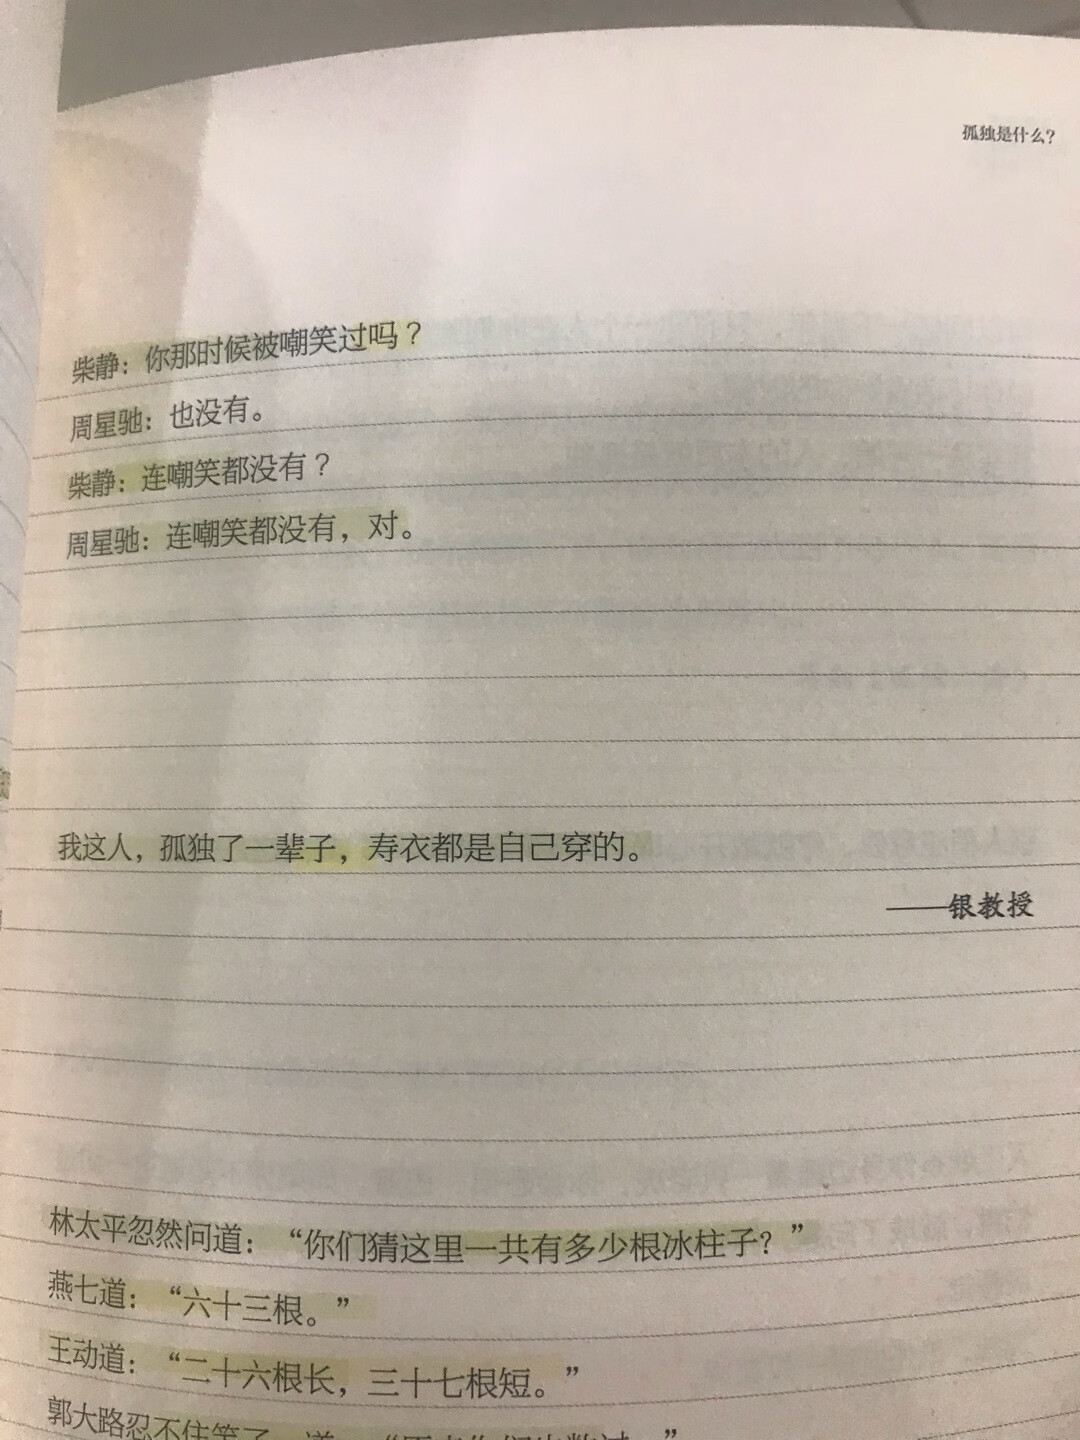 孤独是什么?
柴静：你那时候被嘲笑过吗？
周星驰：也没有。
柴静：连嘲笑都没有？
周星驰：连嘲笑都没有，对。
我这人，孤独了一辈子，寿衣都是自己穿的。
——银教授
林太平忽然问道：“你们猜这里一共有多少根冰柱子？”
燕七道：“六十三根。”
王动道：“二十六根长，三十七根短。”
郭大路忍不住笑了，道：“